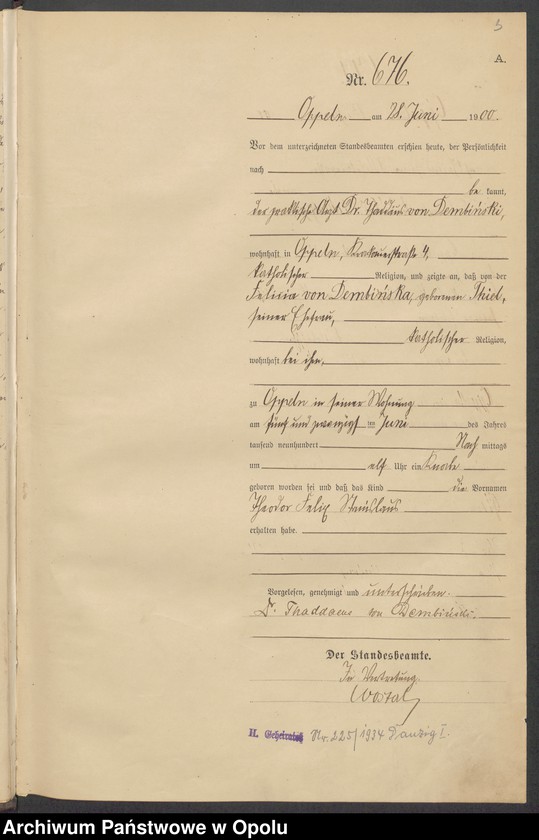 3
A.
Nr. 676.
Oppeln am 28. Juni 1900.
Vor dem unterzeichneten Standesbeamten erschien heute, der Persönlichkeit
nach
be kannt,
der praktische Arzt Dr. Thaddäus von Dembiński,
wohnhaft in Oppeln, Krakauerstraße 4,
katholischer Religion, und zeigte an, daß von der
Felicia von Dembińska, geborenen
seiner Ehefrau,
katholischer Religion,
wohnhaft bei ihm,
zu Oppeln in seiner Wohnung
am fünf und zwanzigsten Juni des Jahres
tausend neunhundert Nach mittags
um elf Uhr ein Knabe
geboren worden sei und daß das Kind die Vornamen
Theodor Felix Stanislaus
erhalten habe.
Vorgelesen, genehmigt und unterschrieben.
Dr. Thaddaeus von Dembiński.
Der Standesbeamte.
In Vertretung.
Wostal
H. Nr. 225/1934 Danzig I.
Archiwum Państwowe w Opolu